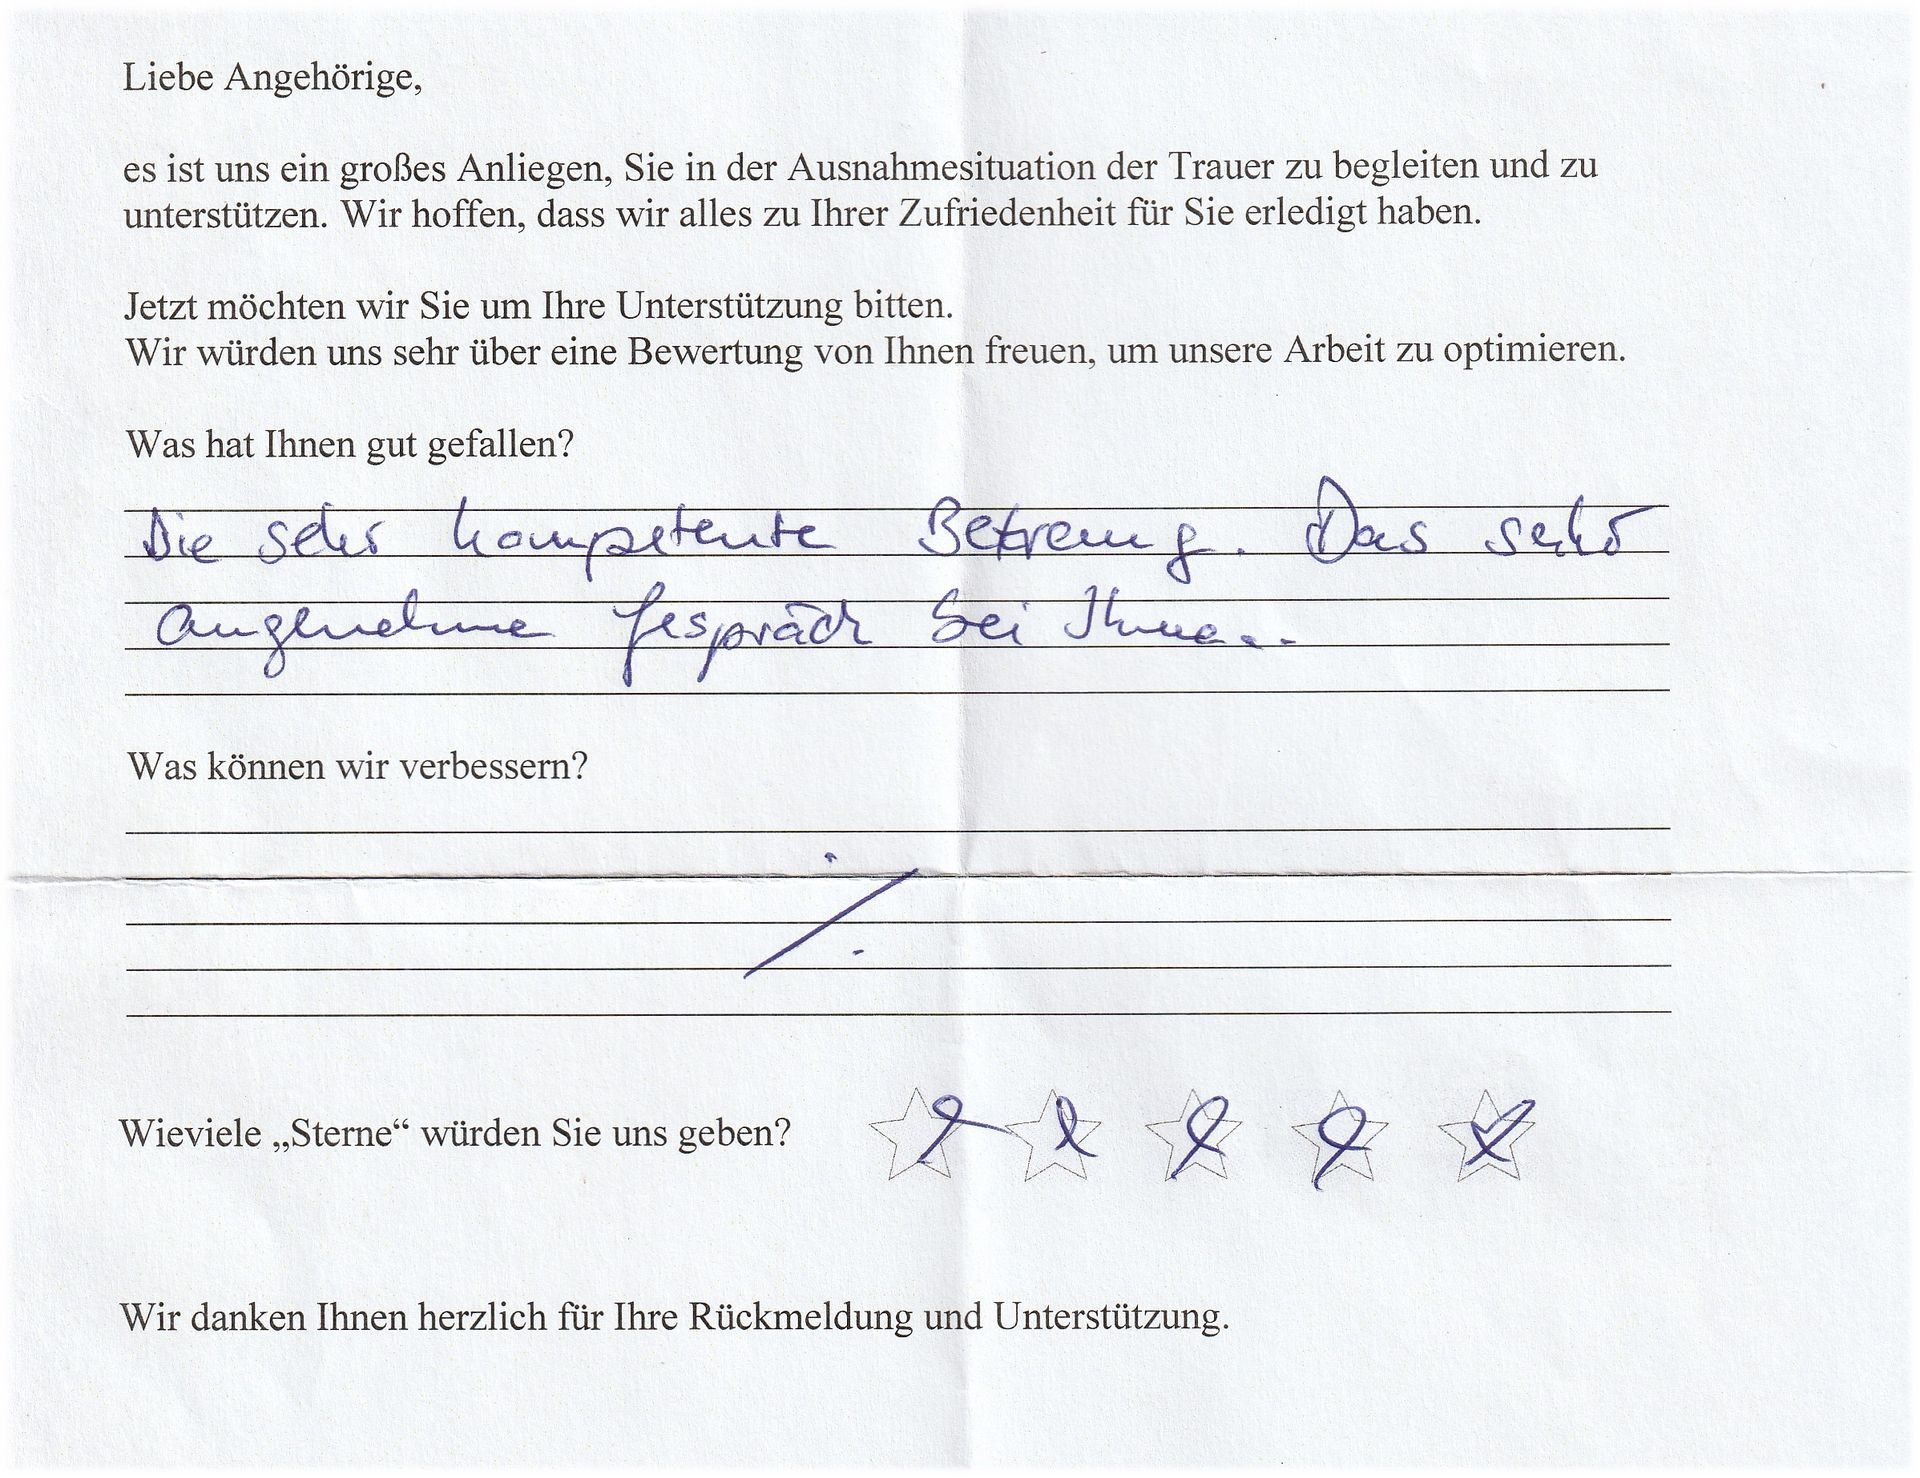 Liebe Angehörige,
es ist uns ein großes Anliegen, Sie in der Ausnahmesituation der Trauer zu begleiten und zu
unterstützen. Wir hoffen, dass wir alles zu Ihrer Zufriedenheit für Sie erledigt haben.
Jetzt möchten wir Sie um Ihre Unterstützung bitten.
Wir würden uns sehr über eine Bewertung von Ihnen freuen, um unsere Arbeit zu optimieren.
Was hat Ihnen gut gefallen?
Die sehr kompetente Betreuung. Das sehr
angenehme Gespräch bei Ihnen..
Was können wir verbessern?
./.
Wieviele „Sterne“ würden Sie uns geben?
Wir danken Ihnen herzlich für Ihre Rückmeldung und Unterstützung.